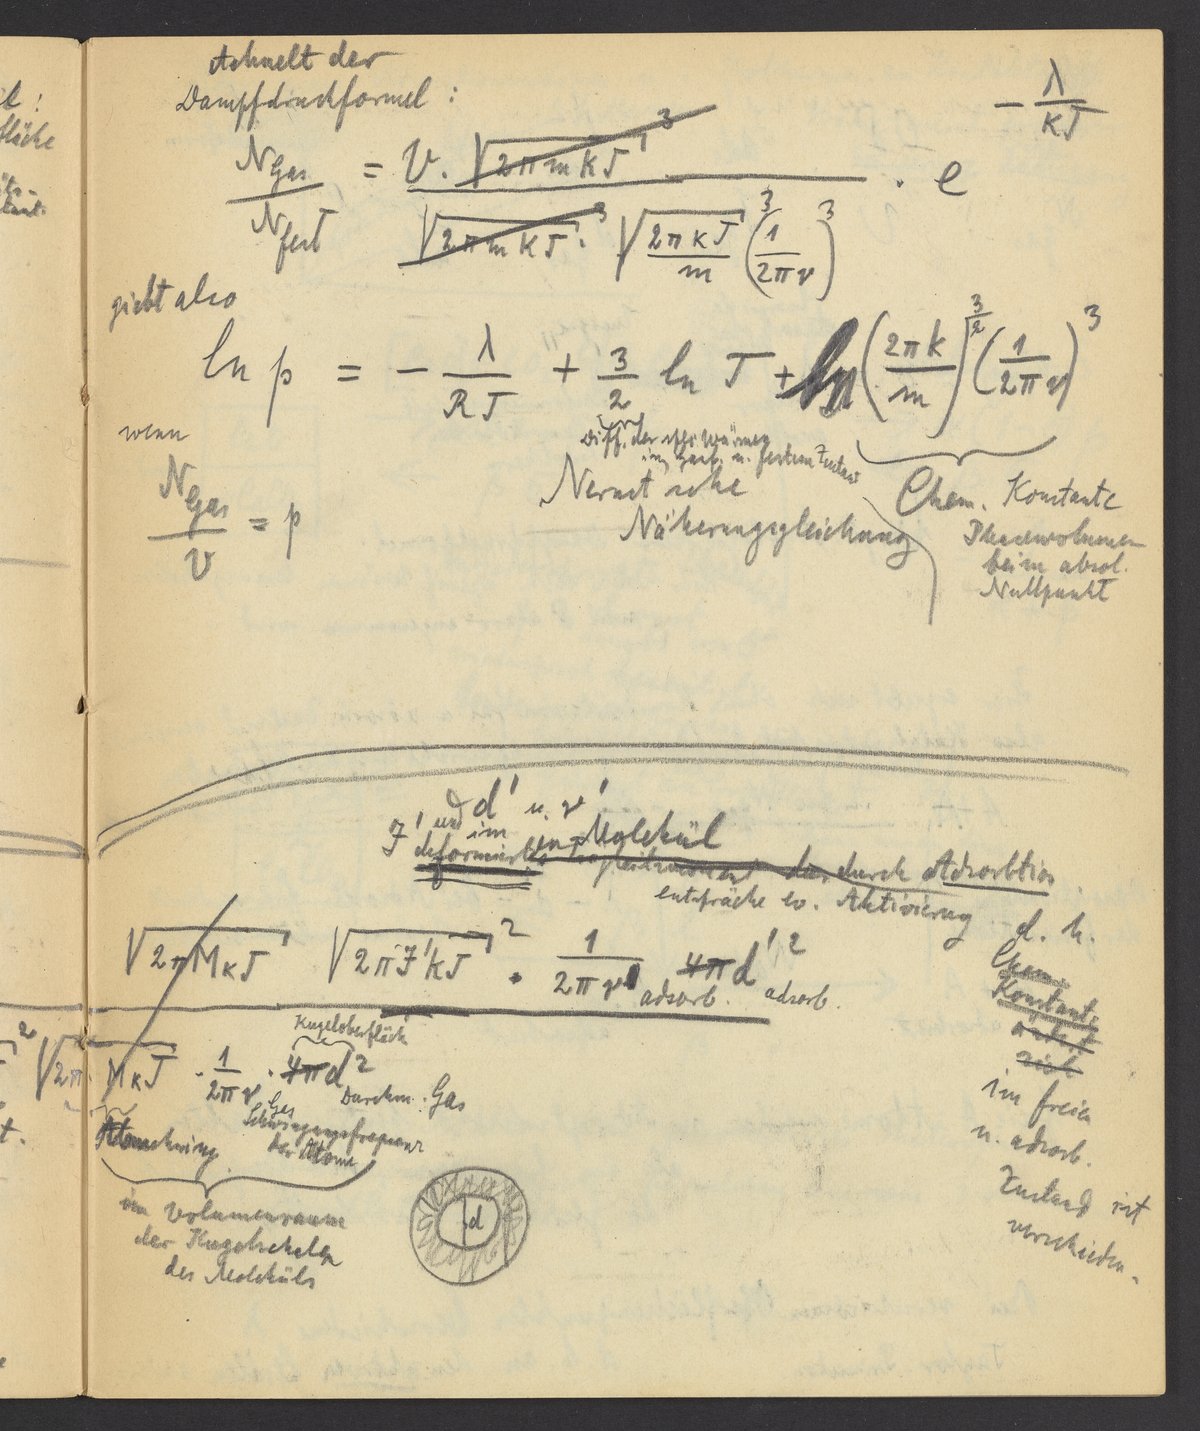 Ähnelt der
Dampfdruckformel :
N_Gas / N_fest = V · √(2π m k T)³ / ( √(2π m k T)³ · √(2π k T / m)³ (1 / 2πν)³ ) · e^(− λ / kT)
giebt also
ln p = − λ / RT + 3/2 ln T + ln (2π k / m)^(3/2) (1 / 2πν)³
wenn
N_Gas / V = p
Diff. der spez. Wärmen
im gasf. u. festem Zustand
Nernst'sche
Näherungsgleichung
Chem. Konstante
Phasenvolumen
beim absol.
Nullpunkt
d' u. ν'
J' und im Molekül
deformierten durch Adsorbtion
entspräche ev. Aktivierung
√(2π M k T) √(2π J' k T)² · 1 / 2πν' adsorb. 4π d'² adsorb.
d. h.
Chem.
Konstante
im freien
u. adsorb.
Zustand ist
verschieden.
Kugeloberfläche
² √(2π M k T) · 1 / 2πν Gas · 4π d² Durchm. Gas
Schwingungsfrequenz
der Atome
Atomschwing.
im Volumenraum
der Kugelschalen
des Moleküls
d